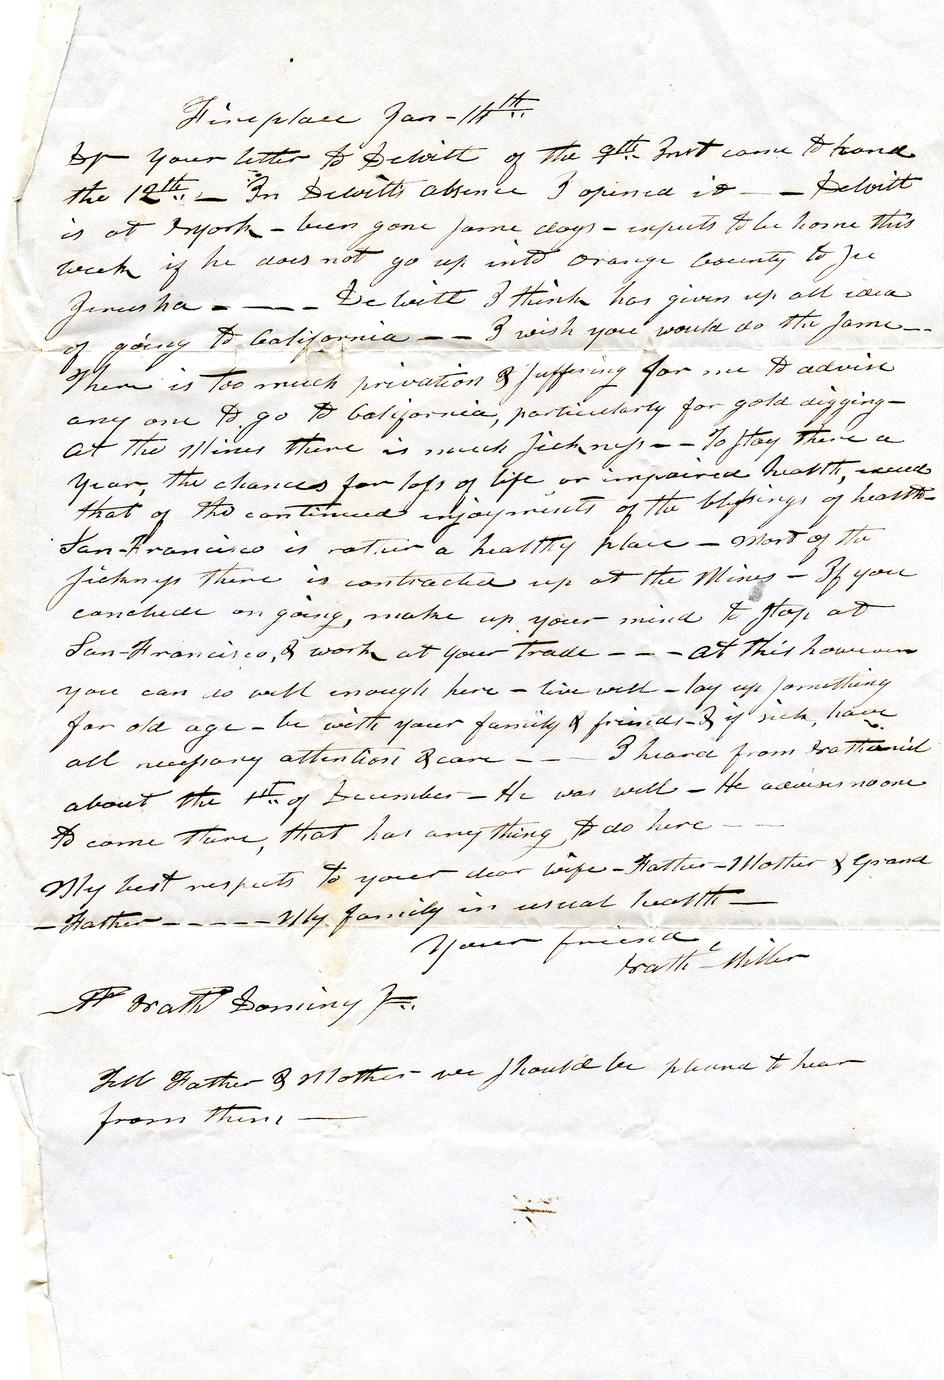 Fireplace Jan - 14th
Dr Your letter to Dewitt of the 9th Inst came to hand
the 12th — In Dewitts absence I opened it — — Dewitt
is at NYork — been gone some days — expects to be home this
week if he does not go up into Orange County to see
Jerusha - — — — Dewitt I think has given up all idea
of going to California — — I wish you would do the same —
There is too much privation & suffering for me to advise
any one to go to California, particularly for gold digging —
At the Mines there is much sickness - - To stay there a
year, the chances for loss of life, or impaired health, exceed
that of the continued enjoyments of the blessings of health —
San-Francisco is rather a healthy place — Most of the
sickness there is contracted up at the Mines — If you
conclude on going, make up your mind to stop at
San-Francisco, & work at your trade - - - at this however
you can do well enough here — live well — lay up something
for old age — be with your family & friends — & if sick, have
all necessary attention & care — — — I heard from Nathaniel
about the 1st of December — He was well — He advises no one
to come there, that has any thing to do here — —
My best respects to your dear wife — Father — Mother & Grand
— Father - - - - - My family in usual health —
Your friend
Nathl Miller
Mr Nathl Dominy Jr.
Tell Father & Mother we should be pleased to hear
from them —